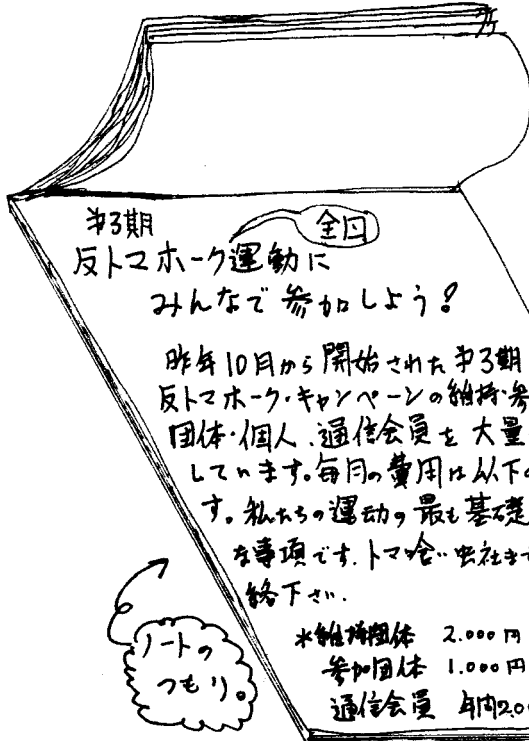 第3期
全日
反トマホーク運動に
みんなで参加しよう!
昨年10月から開始された第3期
反トマホーク・キャンペーンの維持・参
団体・個人、通信会員を大量
しています。毎月の費用は以下の
す。私たちの運動の最も基礎
な事項です。トマ喰い虫社まで
絡下さい.
*維持団体 2.000円
参加団体 1.000円
通信会員 年間2.00
ノートの
つもり。